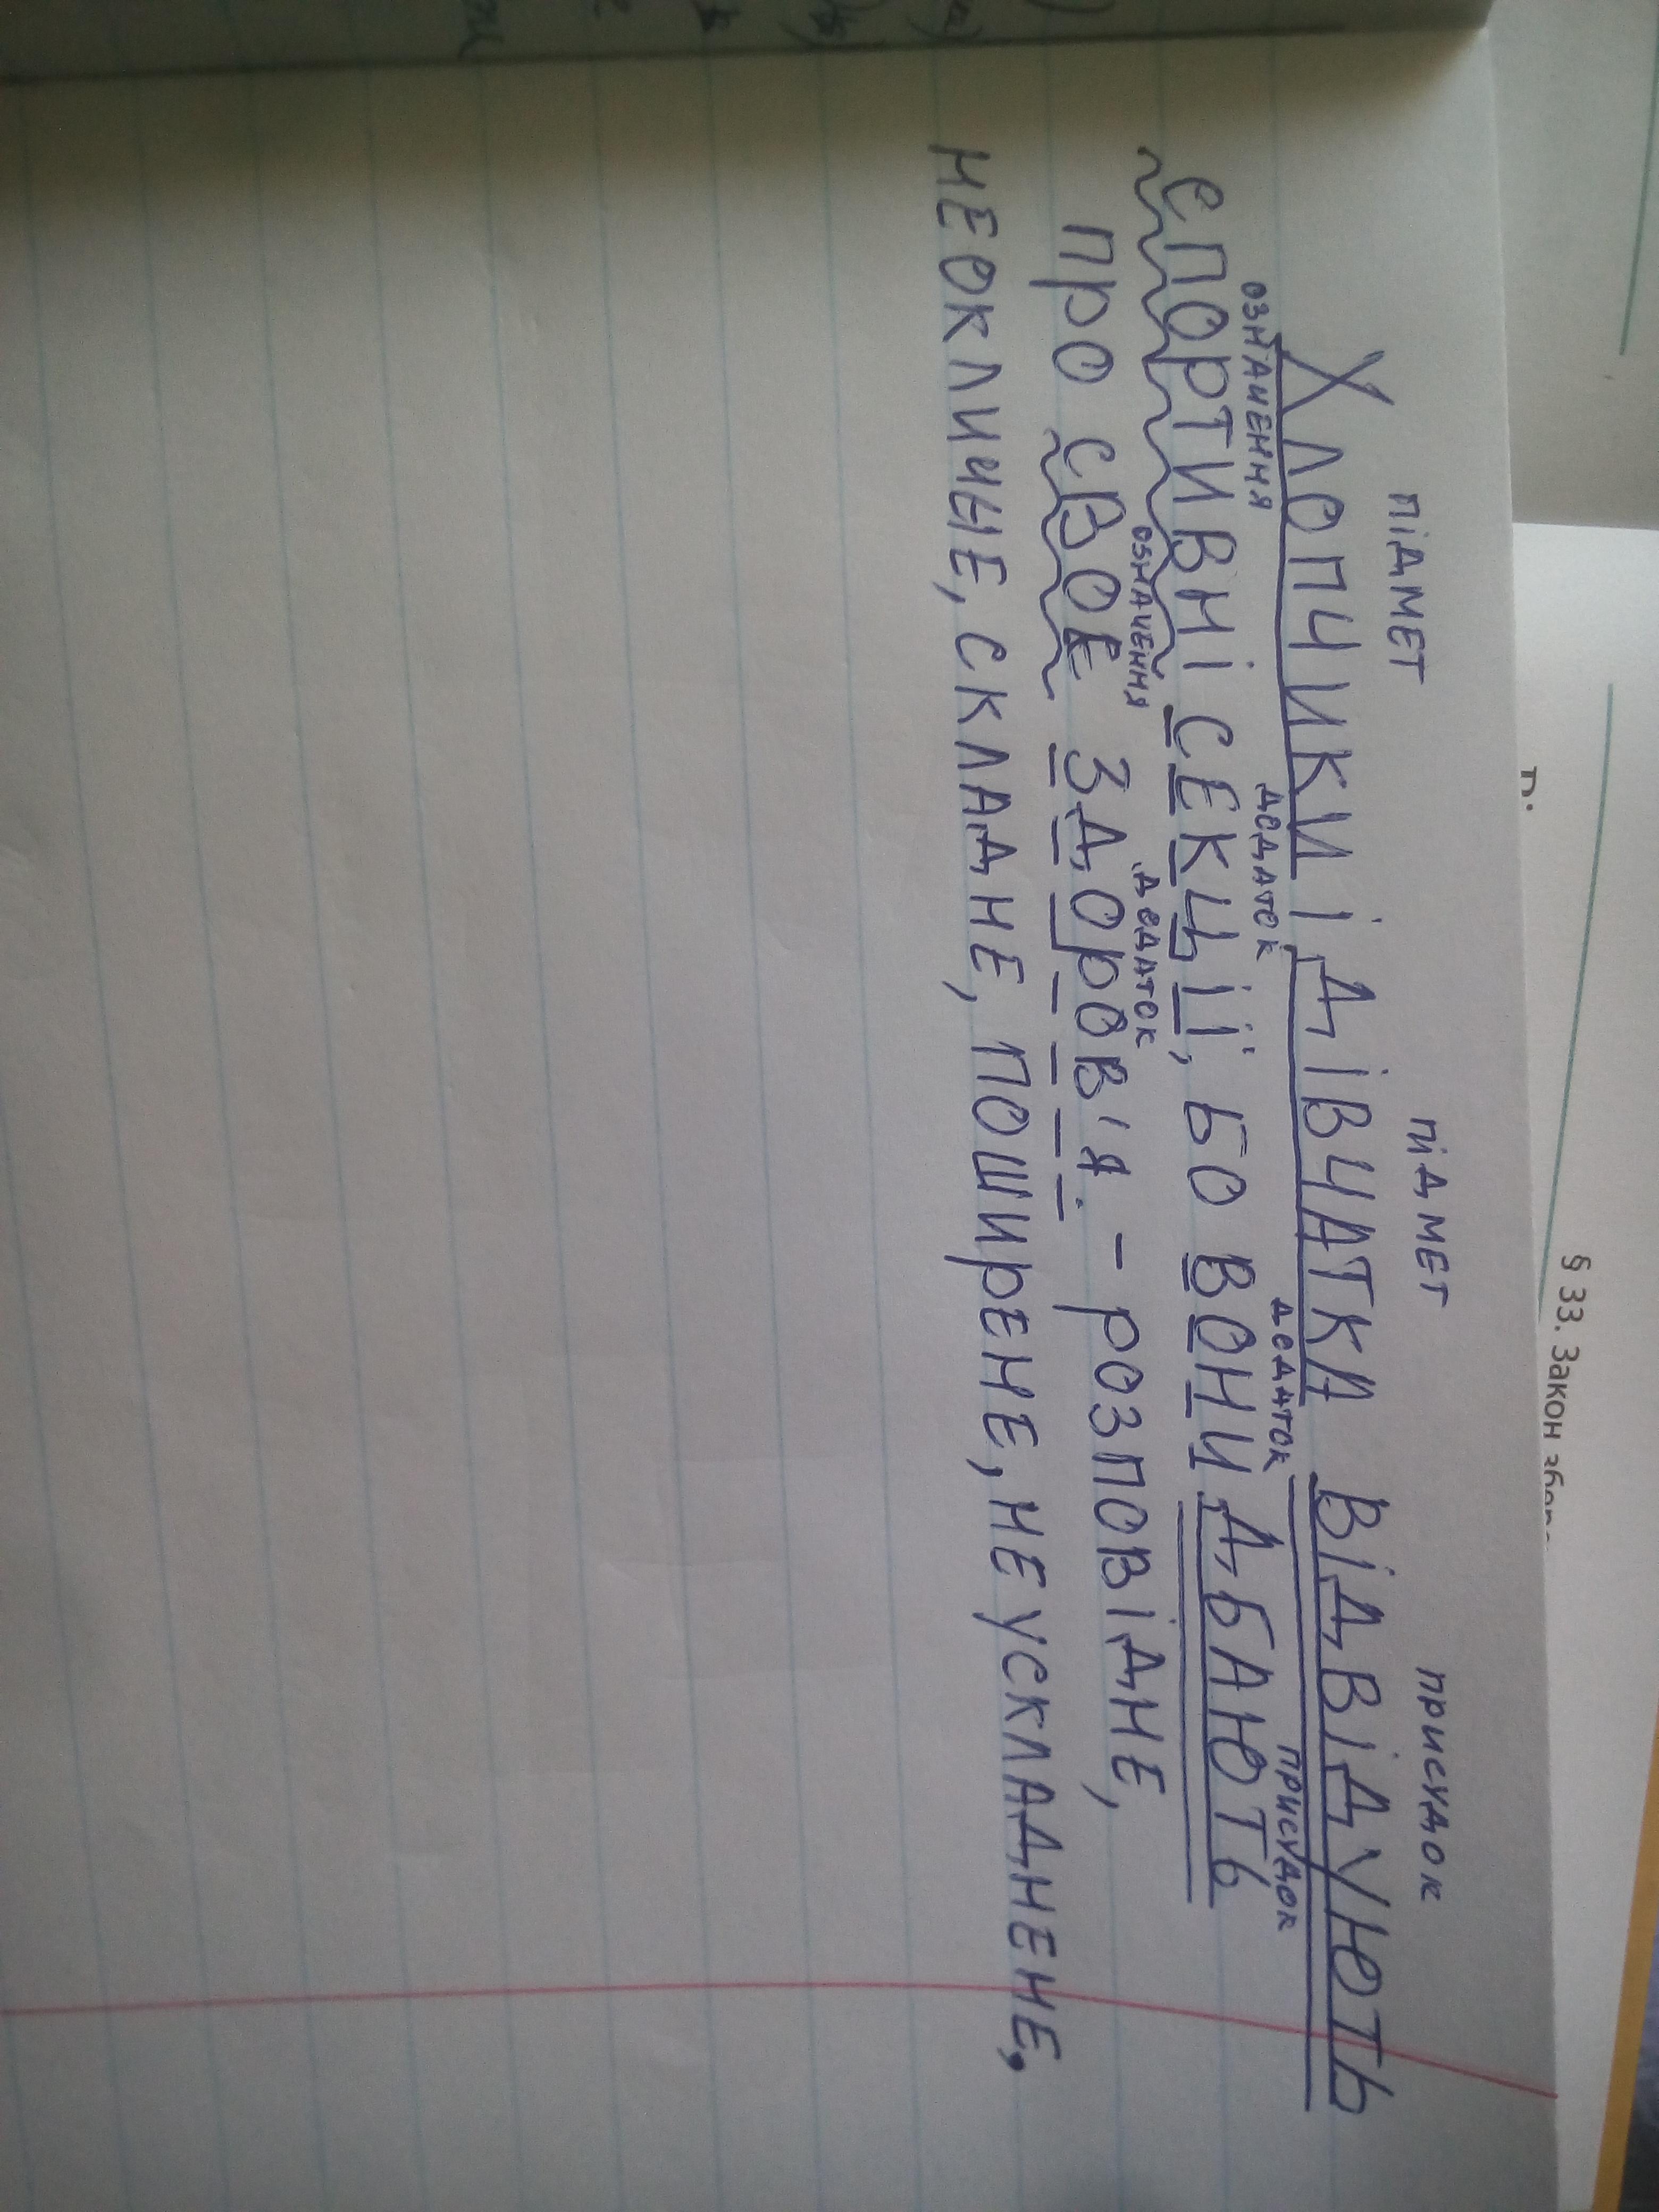 § 33. Закон збере
підмет підмет присудок
Хлопчики і дівчатка відвідують
означення додаток додаток присудок
спортивні секції, бо вони дбають
означення додаток
про своє здоров'я. - розповідне,
неокличне, складне, поширене, не ускладнене.